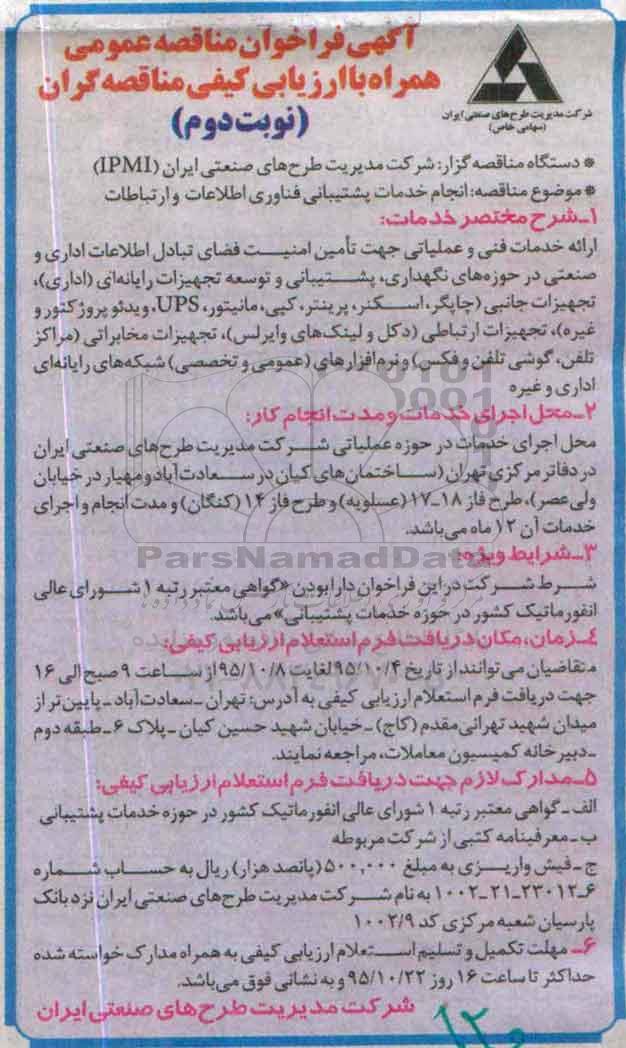 آگهی فراخوان مناقصه عمومی
همراه با ارزیابی کیفی مناقصه گران
(نوبت دوم)
شرکت مدیریت طرح‌های صنعتی ایران
(سهامی خاص)
* دستگاه مناقصه گزار: شرکت مدیریت طرح‌های صنعتی ایران (IPMI)
* موضوع مناقصه: انجام خدمات پشتیبانی فناوری اطلاعات و ارتباطات
۱ـ شرح مختصر خدمات:
ارائه خدمات فنی و عملیاتی جهت تأمین امنیت فضای تبادل اطلاعات اداری و
صنعتی در حوزه‌های نگهداری، پشتیبانی و توسعه تجهیزات رایانه‌ای (اداری)،
تجهیزات جانبی (چاپگر، اسکنر، پرینتر، کپی، مانیتور، UPS، ویدئو پروژکتور و
غیره)، تجهیزات ارتباطی (دکل و لینک‌های وایرلس)، تجهیزات مخابراتی (مراکز
تلفن، گوشی تلفن و فکس) و نرم‌افزارهای (عمومی و تخصصی) شبکه‌های رایانه‌ای
اداری و غیره
۲ـ محل اجرای خدمات و مدت انجام کار:
محل اجرای خدمات در حوزه عملیاتی شرکت مدیریت طرح‌های صنعتی ایران
در دفاتر مرکزی تهران (ساختمان‌های کیان در سعادت‌آباد و مهیار در خیابان
ولی‌عصر)، طرح فاز ۱۸ـ۱۷ (عسلویه) و طرح فاز ۱۴ (کنگان) و مدت انجام و اجرای
خدمات آن ۱۲ ماه می‌باشد.
ParsNamadData
۳ـ شرایط ویژه:
شرط شرکت در این فراخوان دارا بودن «گواهی معتبر رتبه ۱ شورای عالی
انفورماتیک کشور در حوزه خدمات پشتیبانی» می‌باشد.
۴ـ زمان، مکان دریافت فرم استعلام ارزیابی کیفی:
متقاضیان می‌توانند از تاریخ ۹۵/۱۰/۴ لغایت ۹۵/۱۰/۸ از ساعت ۹ صبح الی ۱۶
جهت دریافت فرم استعلام ارزیابی کیفی به آدرس: تهران ـ سعادت‌آباد ـ پایین‌تر از
میدان شهید تهرانی‌مقدم (کاج) ـ خیابان شهید حسین کیان ـ پلاک ۶ ـ طبقه دوم
ـ دبیرخانه کمیسیون معاملات، مراجعه نمایند.
۵ـ مدارک لازم جهت دریافت فرم استعلام ارزیابی کیفی:
الف ـ گواهی معتبر رتبه ۱ شورای عالی انفورماتیک کشور در حوزه خدمات پشتیبانی
ب ـ معرفینامه کتبی از شرکت مربوطه
ج ـ فیش واریزی به مبلغ ۵۰۰,۰۰۰ (پانصد هزار) ریال به حساب شماره
۶ـ۲۳۰۱۲ـ۲۱ـ۱۰۰۲ به نام شرکت مدیریت طرح‌های صنعتی ایران نزد بانک
پارسیان شعبه مرکزی کد ۱۰۰۲/۹
۶ـ مهلت تکمیل و تسلیم استعلام ارزیابی کیفی به همراه مدارک خواسته شده
حداکثر تا ساعت ۱۶ روز ۹۵/۱۰/۲۲ و به نشانی فوق می‌باشد.
شرکت مدیریت طرح‌های صنعتی ایران